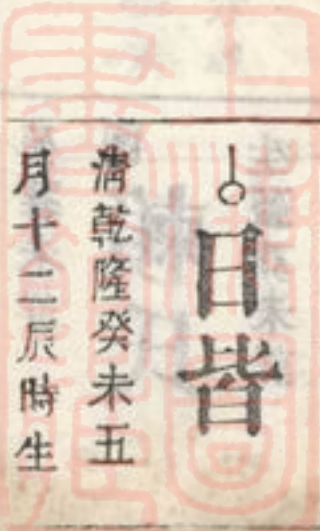 日皆
清乾隆癸未五
月十二辰時生